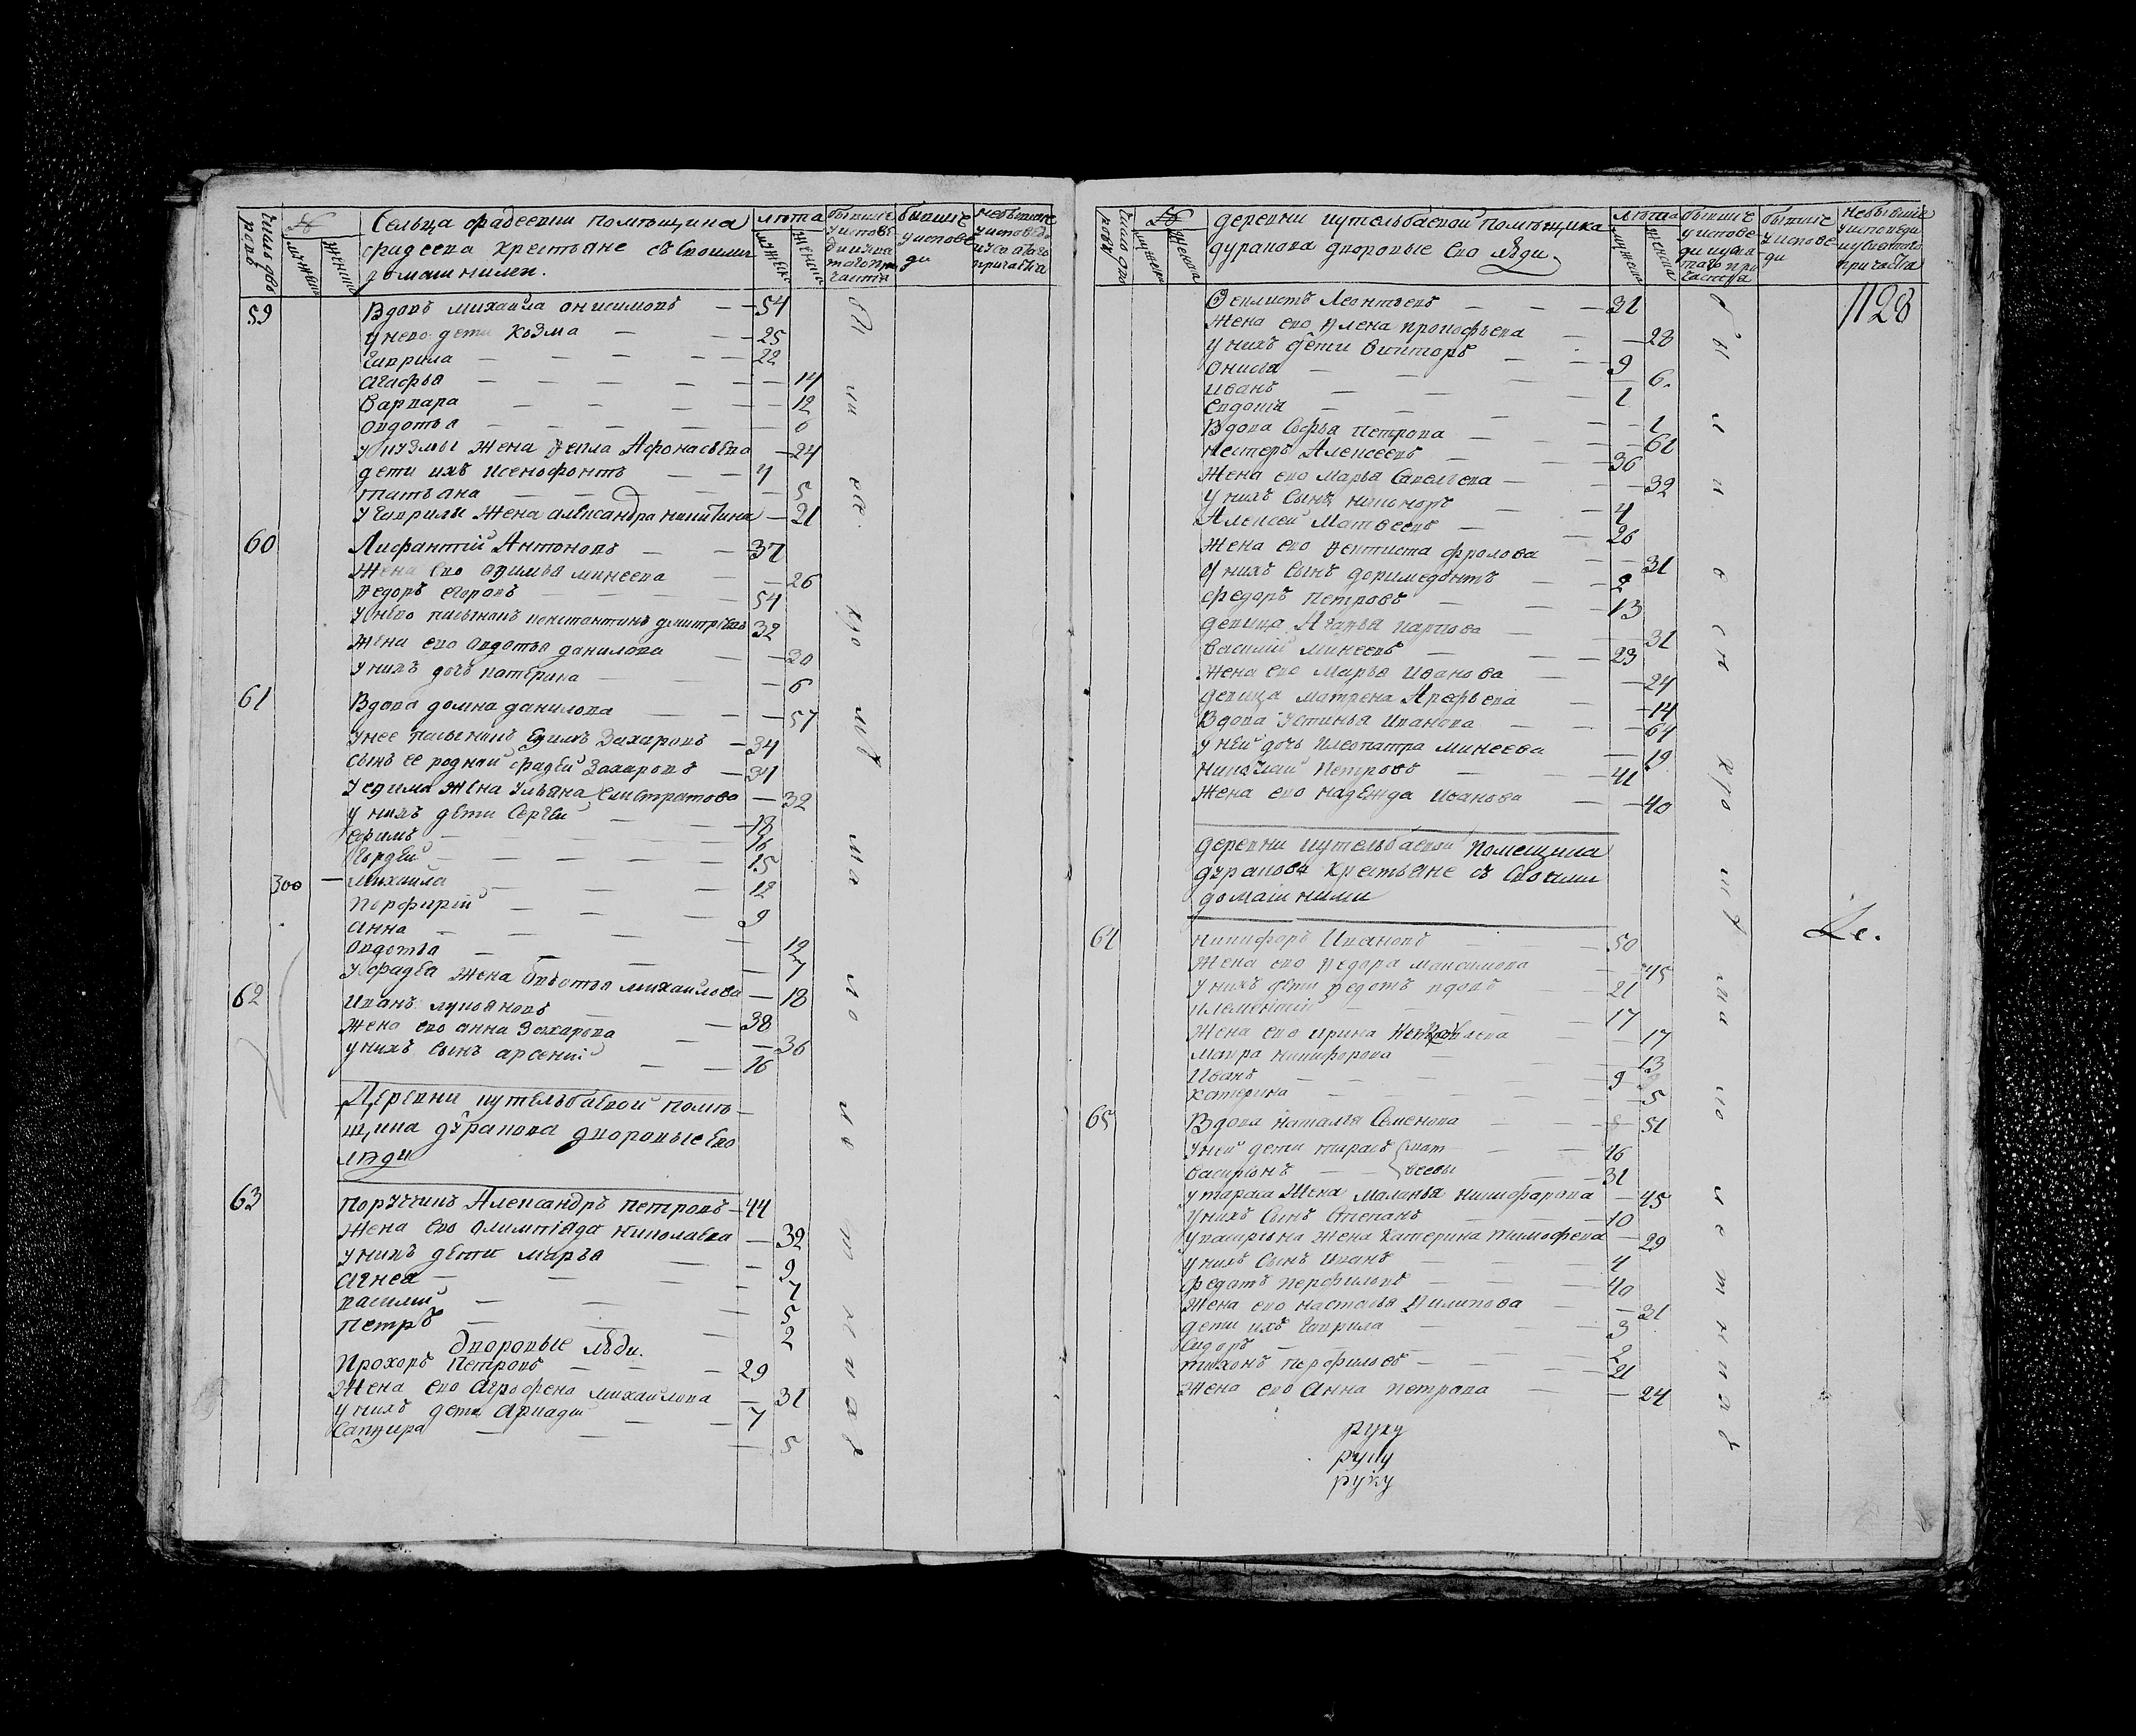 число дворовъ
№
мужескъ
женска
Сельца фадеевки помѣщика
фадеева крестьяне съ своими
домашними.
лѣта
мужеска
женска
бывшие
у испове
ди
бывшие
у испове
ди
59
Вдовъ михаила онисимовъ 54
у него дети козма 25
Гаврила 22
Агафья 14
Варвара 12
овдотья 6
у кузмы жена фекла Афонасьева 24
дети ихъ ксенофонтъ 4
татьана 5
у Гаврилы жена александра никитина 21
60
Лифантий Антоновъ 37
Жена его акулина минеева 26
Федоръ егоровъ 54
У него пасынакъ константинъ дмитриевъ 32
жена его овдотья данилова 30
у нихъ дочь катерина 6
61
Вдова домна данилова 57
У нее пасынакъ Ефимъ Захаровъ 34
сынъ ее родной фадей Захаровъ 31
У ефима жена Ульяна Елистратова 32
у нихъ дети Сергей 18
Ефимъ 16
Гордей 15
300
Михаила 12
Порфирий 9
Анна 12
овдотья 7
У фадея жена овдотья михаилова 18
62
Иванъ лукояновъ 38
жена его анна Захарова 36
у нихъ сынъ арсений 16
Деревни кутельбаевой помѣ-
щика дуранова дворовые его
люди
63
порутчикъ Александръ петровъ 44
жена его олимпиада николаева 32
у нихъ дети марья 9
Агнея 7
василий 5
петръ 2
Дворовые люди.
Прохоръ петровъ 29
Жена его Аграфена михаилова 31
у нихъ дети Аркадий 7
Сапфира 5
число дво
№
мужеска
женска
деревни кутельбаевой помѣщика
дуранова дворовые его люди.
лѣта
мужеска
женска
бывшие
у испове
ди
бывшие
у испове
ди
небывшие
у исповеди
и у святаго
причастия
1128
Феклистъ Леонтьевъ 31
жена его Елена прокофьева 28
у нихъ дети викторъ 9
Онисья 6.
иванъ 1
Евдокия 1
Вдова Софья петрова 61
нестеръ Алексеевъ 36
жена его марья Савельева 32
у нихъ сынъ никаноръ 4
Алексей Матвеевъ 26
жена его фектиста фролова 31
у нихъ сынъ доримедонтъ 2
Федоръ петровъ 13
девица Агапья карпова 31
Василий минеевъ 23
жена его марья иванова 24
девица матрена Арефьева 14
Вдова устинья иванова 64
у ней дочь клеопатра минеева 19
николай петровъ 41
жена его надежда иванова 40
деревни кутельбаевой помещика
дуранова крестьяне съ своими
домашними
64
никифоръ Ивановъ 50
жена его федора максимова 45
у нихъ дети федотъ вдовъ 21
клементий 17
жена его ирина 17
мавра никифорова 13
Иванъ 9
катерина 5
65
Вдова наталья Семенова 51
у ней дети тарасъ 46
василъ 31
у тараса жена маланья никифорова 45
у нихъ сынъ степанъ 10
жена катерина тимофеева 29
у нихъ сынъ иванъ 4
федатъ перфильевъ 40
жена его настасья филипова 31
дети ихъ гаврила 3
Сидоръ 2
тихонъ перфильевъ 21
жена его анна петрова 24
руку
руку
руку